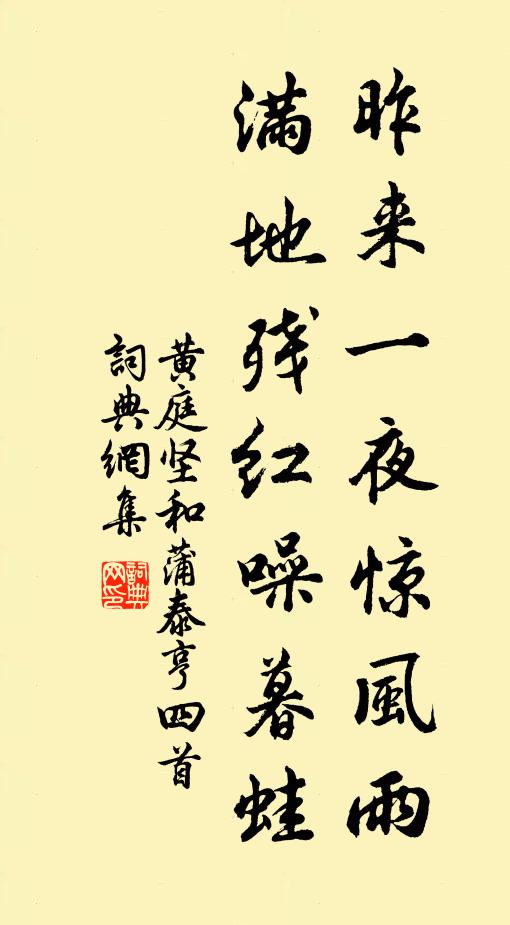 昨来一夜惊風雨
满地残红噪暮蛙
黄庭坚和蒲泰亨四首
詞典網集
詞典网印